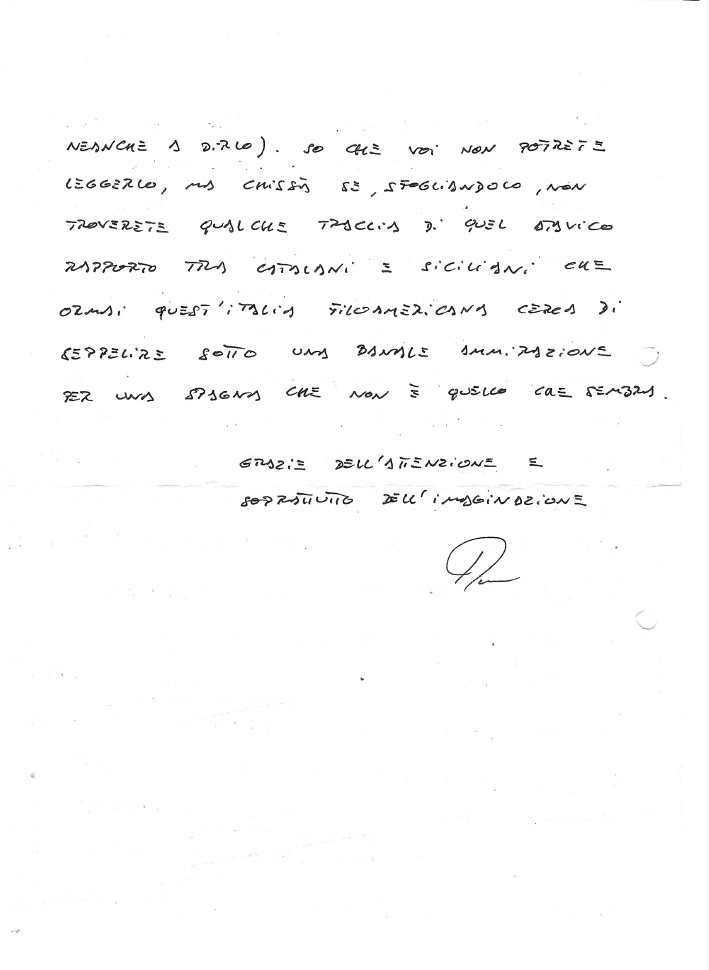 NEANCHE A DIRLO). SO CHE VOI NON POTRETE
LEGGERLO, MA CHISSÀ SE, SFOGLIANDOLO, NON
TROVERETE QUALCHE TRACCIA DI QUEL ATAVICO
RAPPORTO TRA CATALANI E SICILIANI CHE
ORMAI QUEST'ITALIA FILOAMERICANA CERCA DI
SEPPELIRE SOTTO UNA BANALE AMMIRAZIONE
PER UNA SPAGNA CHE NON È QUELLO CHE SEMBRA.
GRAZIE DELL'ATTENZIONE E
SOPRATTUTTO DELL'IMAGINAZIONE